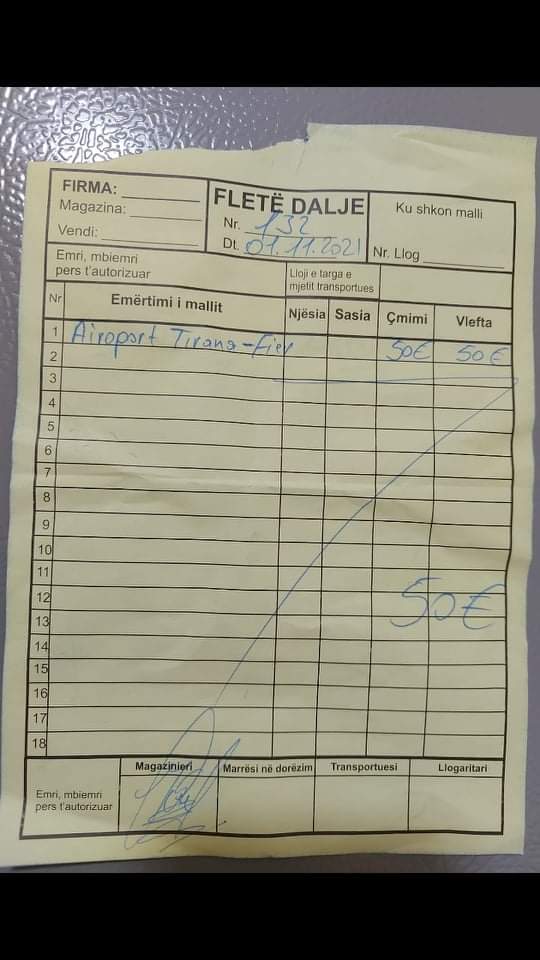 FIRMA:
Magazina:
Vendi:
FLETË DALJE
Nr. 132
Dt. 01.11.2021
Ku shkon malli
Nr. Llog
Emri, mbiemri
pers t'autorizuar
Lloji e targa e
mjetit transportues
Nr Emërtimi i mallit Njësia Sasia Çmimi Vlefta
1 Airoport Tirana-Fier 50€ 50€
2
3
4
5
6
7
8
9
10
11
12
13 50€
14
15
16
17
18
Emri, mbiemri
pers t'autorizuar
Magazinieri
Marrësi në dorëzim
Transportuesi
Llogaritari